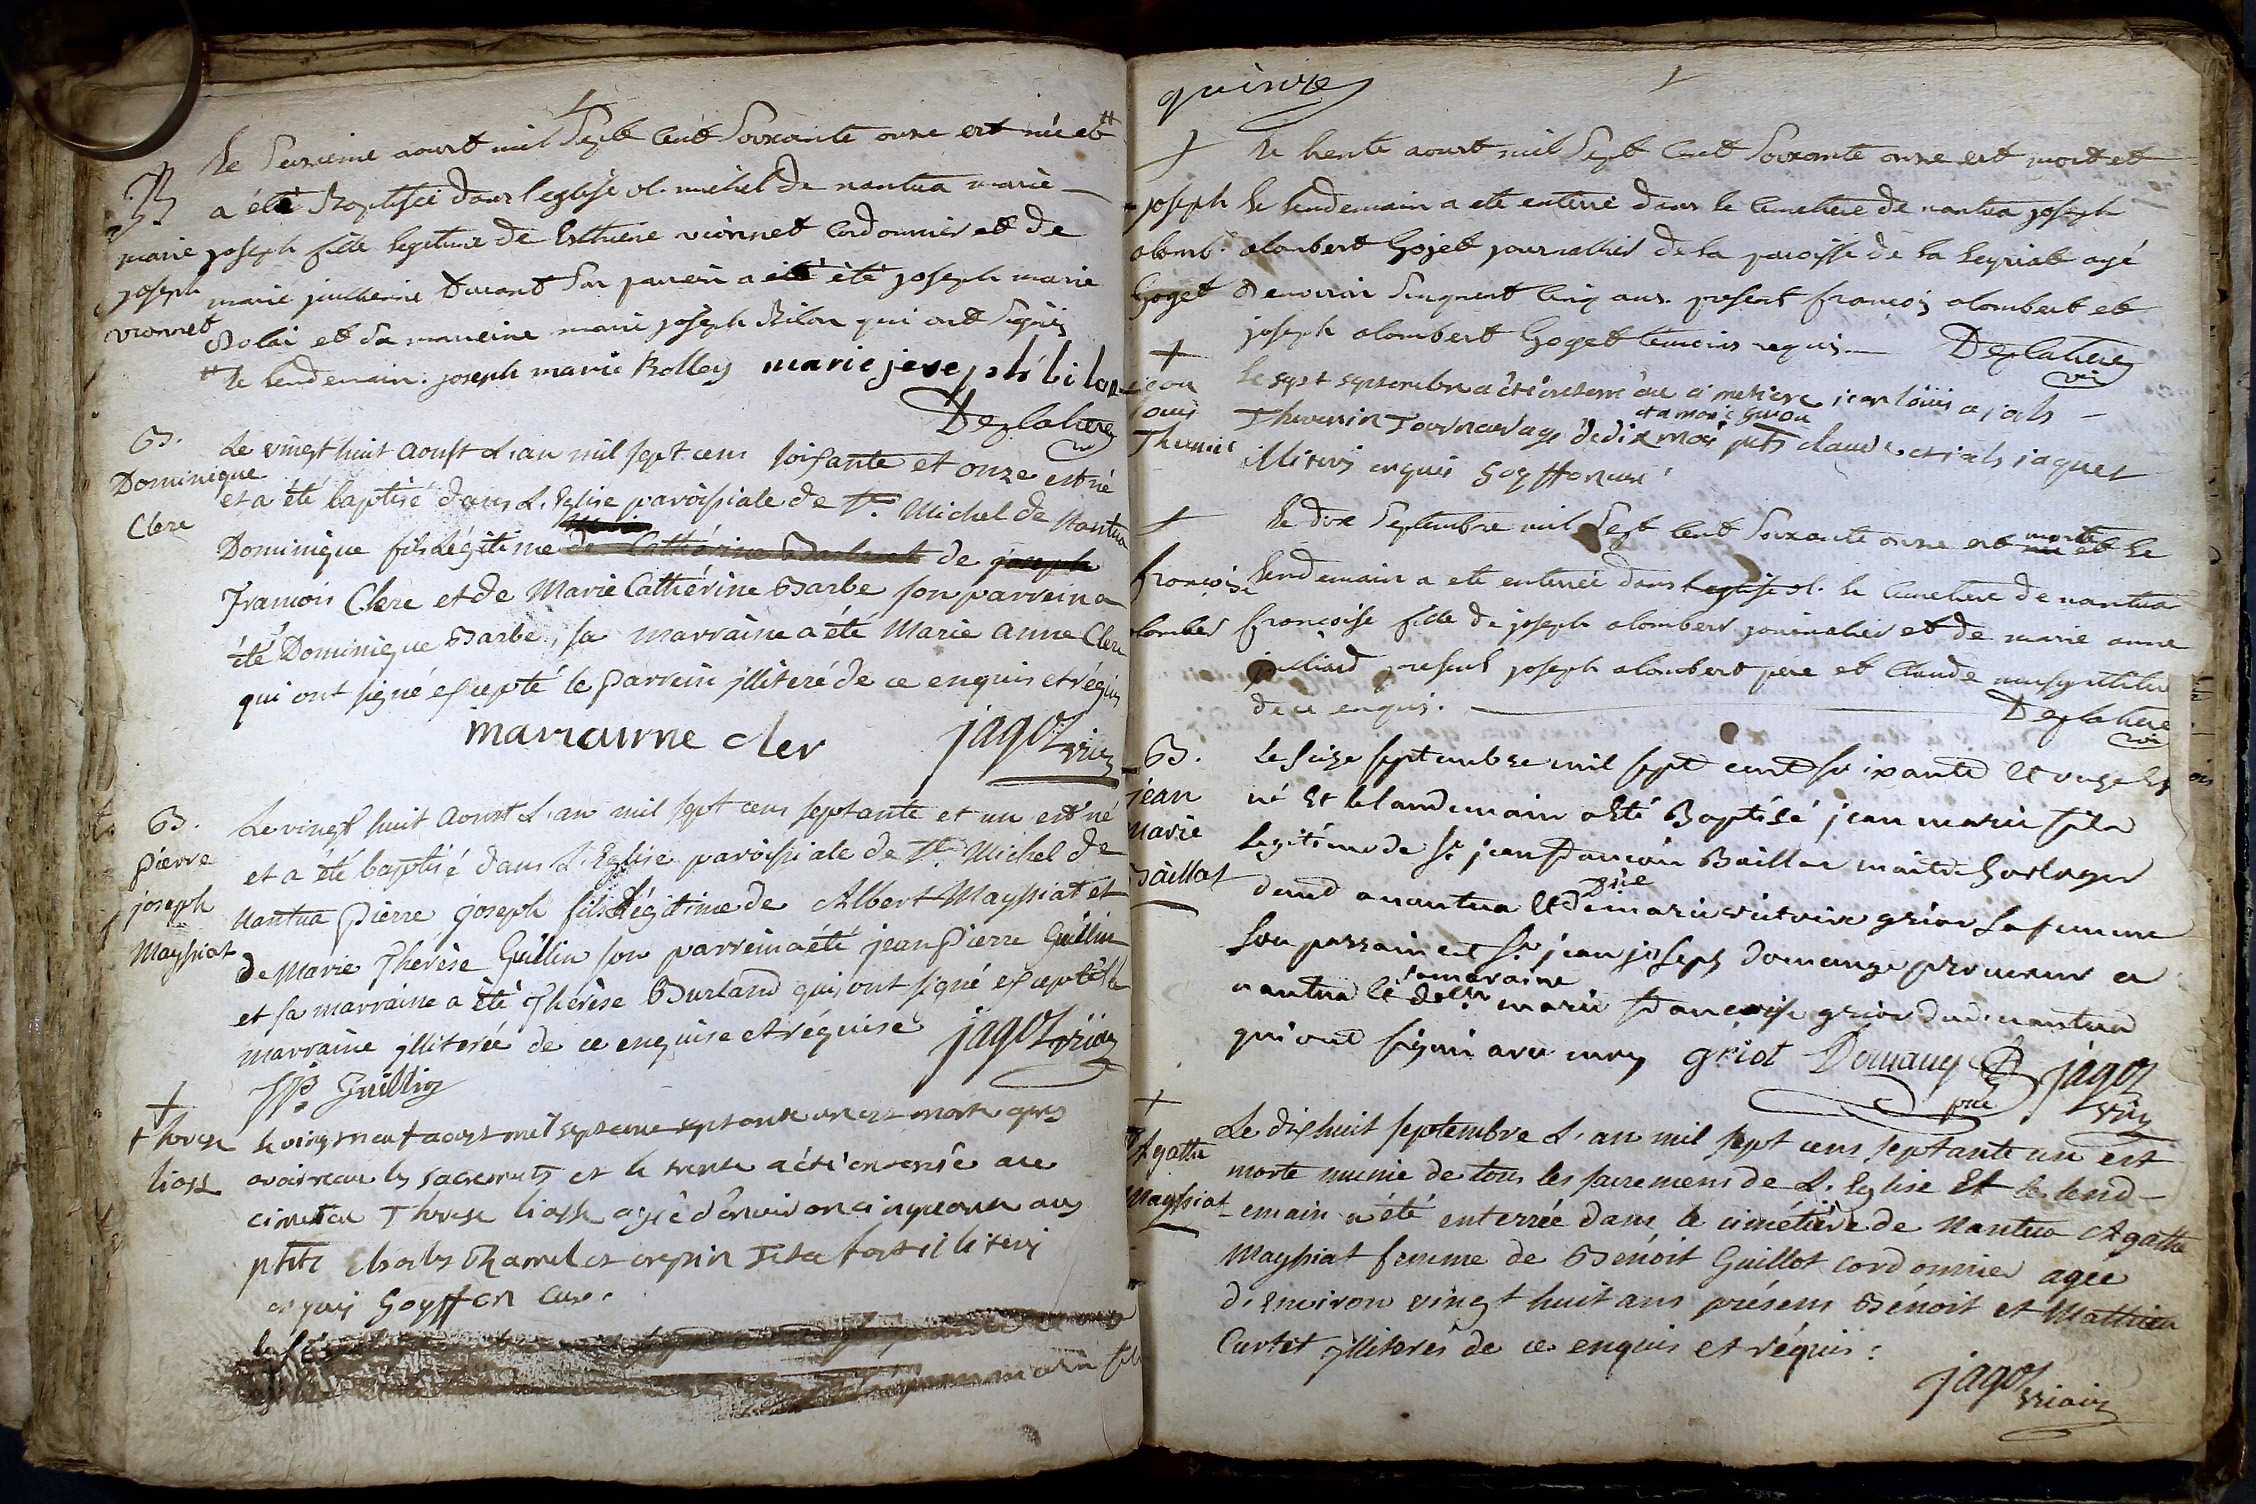 B
marie
joseph
vionnet
Le seizieme aoust mil sept cent soixante onze est née et #
a été Baptisée dans l'eglise st. michel de nantua marie
joseph fille legitime de Esthiene vionnet cordonnier et de
marie juilherme Durand son parrein a été joseph marie
Rolai et sa marreine marie joseph Bilon qui ont signés
# le lendemain. joseph marie Rolley marie jeseph bilon
Deglatiere
vic
B.
Dominique
Clerc
Le vingt huit aoust L'an mil sept cens soissante et onze est né
et a été baptisé dans L'Eglise paroissiale de St. Michel de Nantua
Dominique fils légitime de Cathérine de joseph
François Clerc et de Marie Cathérine Barbe son parrein a
été Dominique Barbe, sa marraine a été Marie Anne Clerc
qui ont signé excepté le parrein jlliteré de ce enquis et réquis
mariaurne cler jagoz vic
B.
pierre
joseph
Mayssiat
Le vingt huit Aoust L'an mil sept cens septante et un est né
et a été baptisé dans L'Eglise paroissiale de St. Michel de
Nantua Pierre joseph fils Légitime de Albert Mayssiat et
de Marie Thérèse Guillin son parrein a été jean Pierre Guillin
et sa marraine a été Thérèse Burland qui ont signé excepté la
marraine jlliterée de ce enquise et réquise jagoz vic
JP Guillin
+
therese
liass
le vingt neuf aoust mil sept cens septante un est morte apres
avoir recu les sacrements et le trente a été enterrée au
cimetiere Therese liass agée d'environ cinquante ans
pnts charles et crepin illiterés
enquis Goyffon curé
quinze
+
joseph
alomb.
Goget
le trente aoust mil sept cent soixante onze est mort et
le lendemain a ete enterré dans le cimetiere de nantua joseph
alombert Gojet journalier de la paroisse de la leyriat agé
d'environ cinquent cinq ans. present françois alombert et
joseph alombert Goget temoins requis. Deglatiere
vic
+
jean
louis
Thevenin
le sept septembre a été enterré au cimetiere jean louis a jals
Thevenin Tournavage de dix mois pnts claude et jals jaques
et a marie Guiou
illiterés enquis Goyffon curé
+
françoise
alomber
le dix septembre mil sept cent soixante onze est morte et le
lendemain a ete enterrée dans l'eglise st. le cimetiere de nantua
françoise fille de joseph alombert journalier et de marie anne
juilliard present joseph alombert pere et Claude
de ce enquis. Deglatiere
vic
B.
jean
Marie
Baillat
Le seize septembre mil sept cent soixante et onze est
né et le landemain a été Baptisé jean marie fils
legitime de sr. jean françois Baillat maitre horloger
demt a nantua et de Dlle marie victoire griot sa femme
son parrain est sr. jean joseph Domange procureur a
nantua et sa maraine delle marie françoise griot dud. nantua
qui ont signé avec moy griot Domange jagoz
pre vic
+
Agathe
Mayssiat
Le dix huit septembre L'an mil sept cens septante un est
morte munie de tous les sacremens de L'Eglise Et le lend-
emain a été enterrée dans le cimétière de Nantua Agathe
Mayssiat femme de Benoit Guillot cordonnier agée
d'environ vingt huit ans présens Bénoit et Mathieu
Curtet jlliterés de ce enquis et réquis.
jagoz vicair